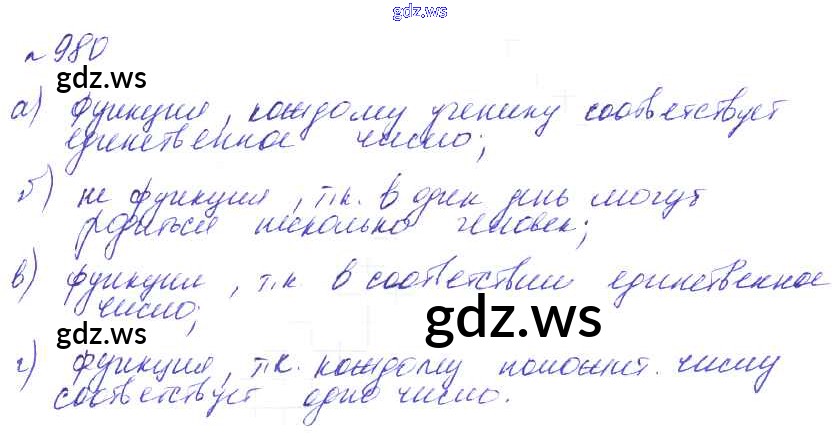 gdz.ws
№ 980
gdz.ws
а) функция, каждому ученику соответствует
единственное число;
б) не функция, т.к. в один день могут
родиться несколько человек;
в) функция, т.к. в соответствии единственное
число;
gdz.ws
gdz.ws
г) функция, т.к. каждому положит. числу
соответствует одно число.